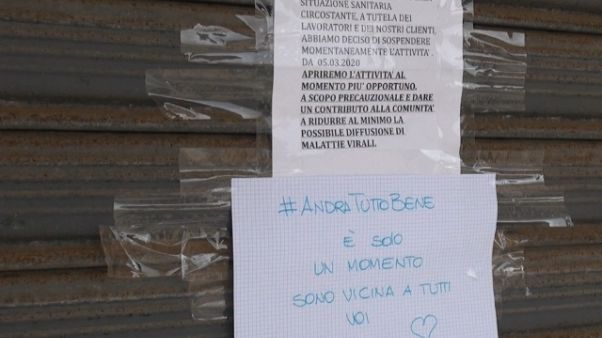 SITUAZIONE SANITARIA
CIRCOSTANTE, A TUTELA DEI
LAVORATORI E DEI NOSTRI CLIENTI,
ABBIAMO DECISO DI SOSPENDERE
MOMENTANEAMENTE L'ATTIVITA'.
DA 05.03.2020
APRIREMO L'ATTIVITA' AL
MOMENTO PIU' OPPORTUNO.
A SCOPO PRECAUZIONALE E DARE
UN CONTRIBUTO ALLA COMUNITA'
A RIDURRE AL MINIMO LA
POSSIBILE DIFFUSIONE DI
MALATTIE VIRALI.
#ANDRATUTTOBENE
È SOLO
UN MOMENTO
SONO VICINA A TUTTI
VOI